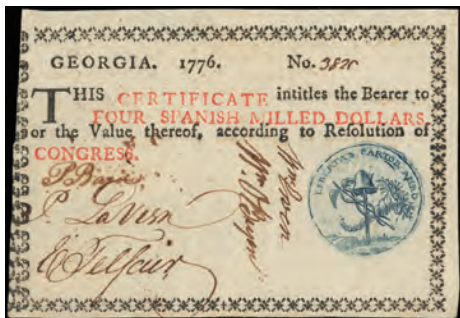 GEORGIA. 1776. No.
THIS CERTIFICATE intitles the Bearer to
FOUR SPANISH MILLED DOLLARS,
or the Value thereof, according to Resolution of
CONGRESS.
P. LaVien
E Telfair